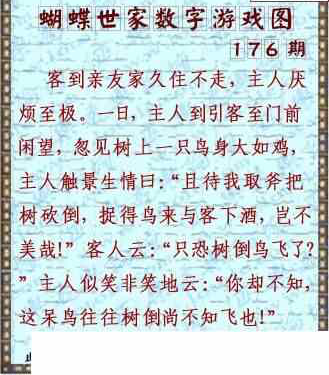 蝴蝶世家数字游戏图
176期
客到亲友家久住不走，主人厌
烦至极。一日，主人到引客至门前
闲望，忽见树上一只鸟身大如鸡，
主人触景生情曰：“且待我取斧把
树砍倒，捉得鸟来与客下酒，岂不
美哉！”客人云：“只恐树倒鸟飞了？
”主人似笑非笑地云：“你却不知，
这呆鸟往往树倒尚不知飞也！”